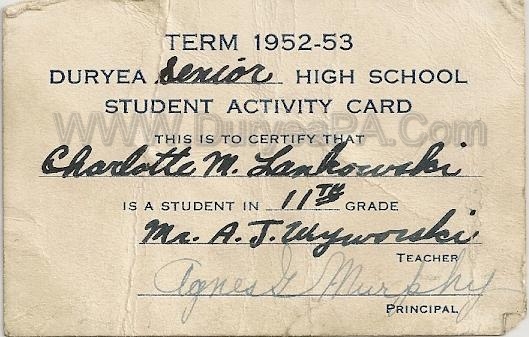 TERM 1952-53
DURYEA Senior HIGH SCHOOL
STUDENT ACTIVITY CARD
www.DuryeaPA.Com
THIS IS TO CERTIFY THAT
Charlotte M. Lankowski
IS A STUDENT IN 11TH GRADE
Mr. A. J. Wyworski
TEACHER
Agnes G Murphy
PRINCIPAL